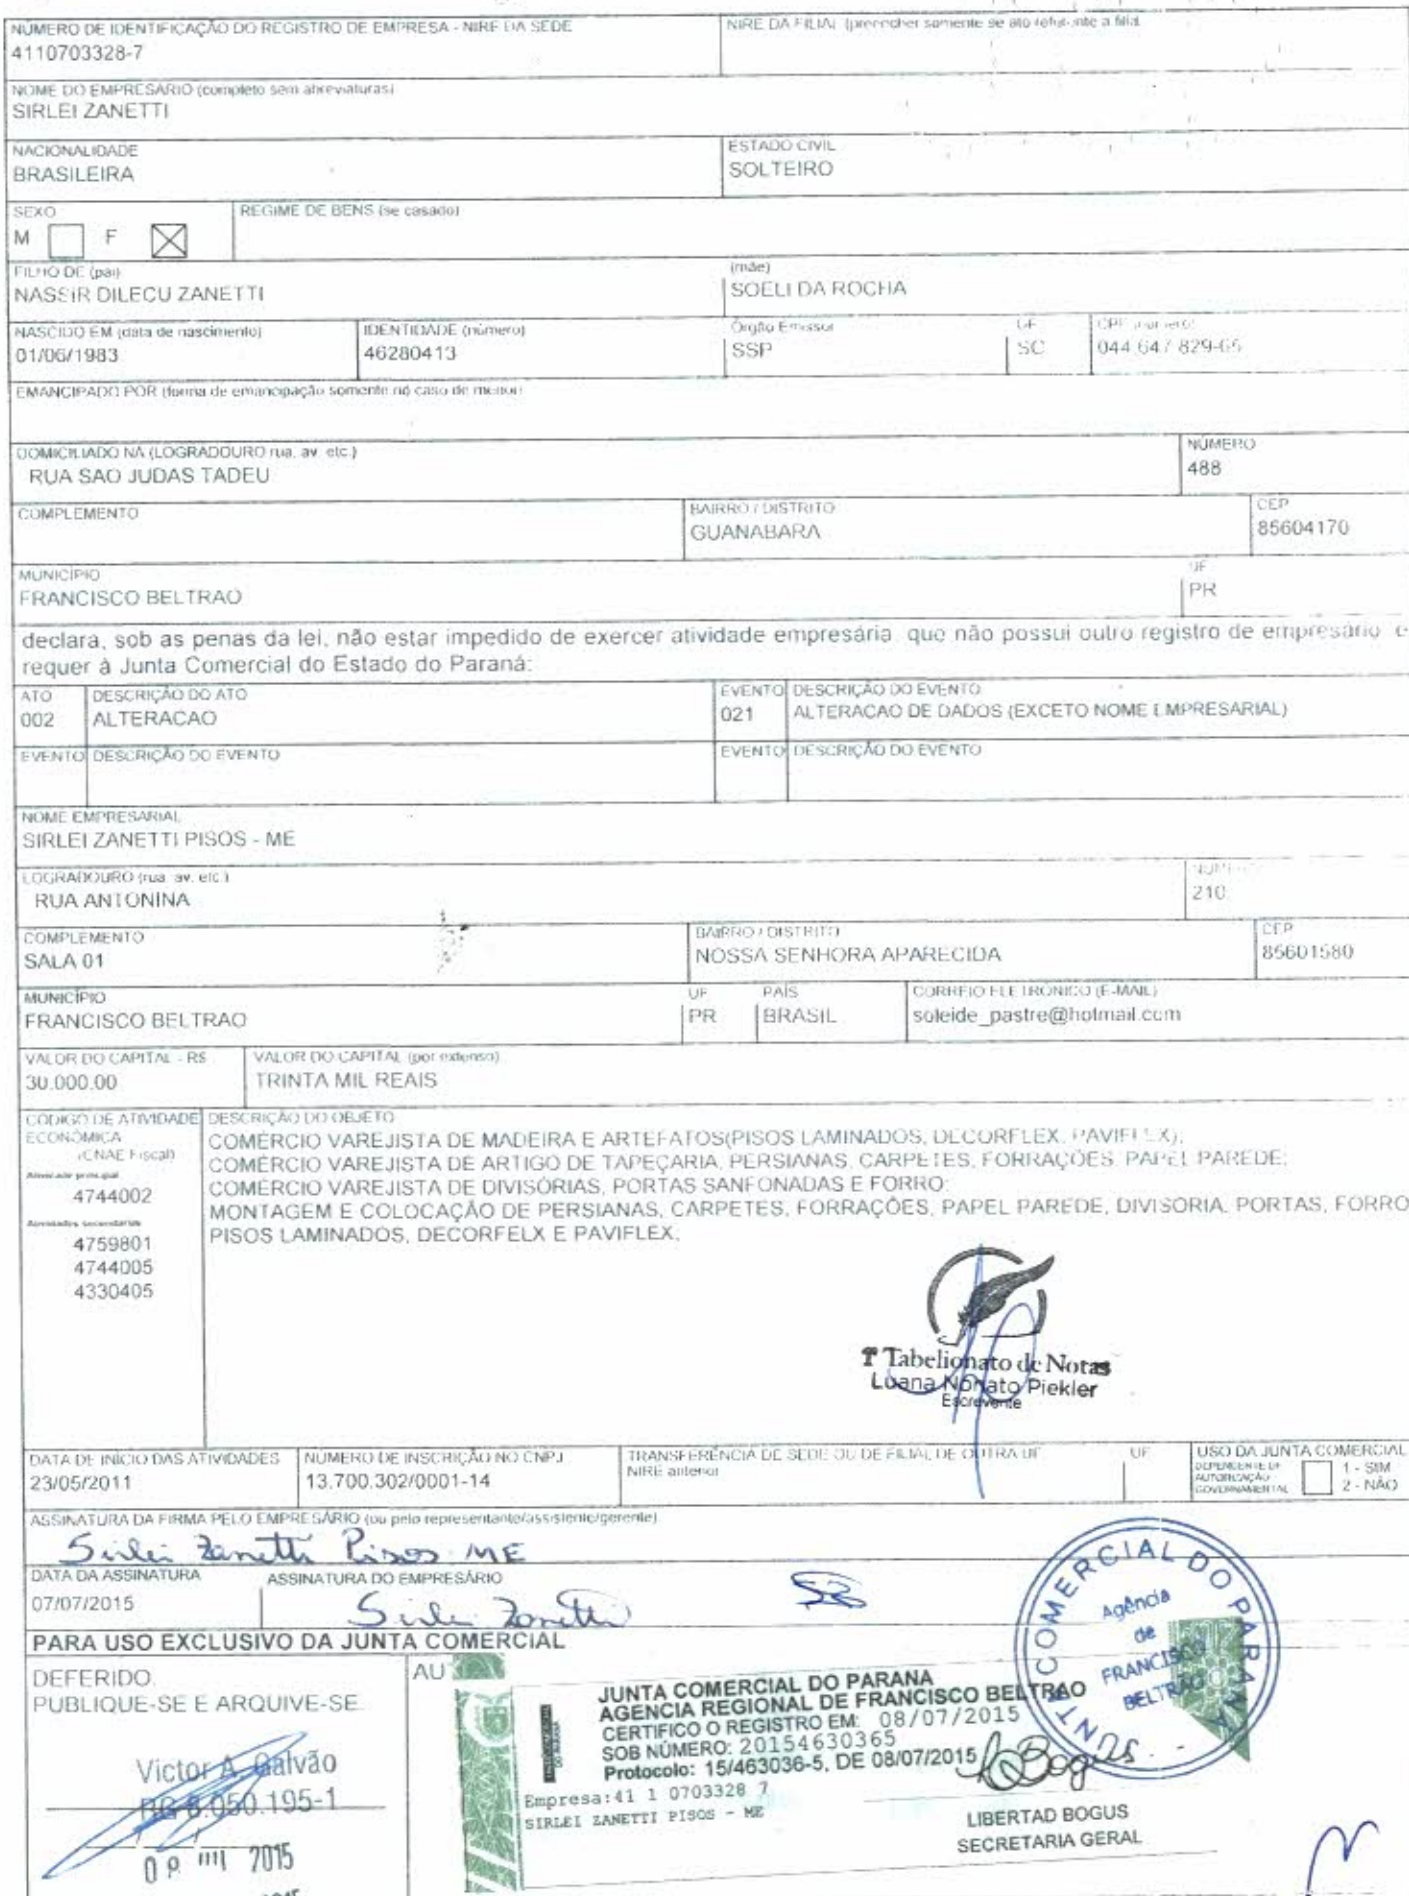 NÚMERO DE IDENTIFICAÇÃO DO REGISTRO DE EMPRESA - NIRE DA SEDE
4110703328-7
NIRE DA FILIAL (preencher somente se ato referente a filial
NOME DO EMPRESÁRIO (completo sem abreviaturas)
SIRLEI ZANETTI
NACIONALIDADE
BRASILEIRA
ESTADO CIVIL
SOLTEIRO
SEXO
M F
REGIME DE BENS (se casado)
FILHO DE (pai)
NASSIR DILECU ZANETTI
(mãe)
SOELI DA ROCHA
NASCIDO EM (data de nascimento)
01/06/1983
IDENTIDADE (número)
46280413
Órgão Emissor
SSP
UF
SC
CPF (número)
044.647.829-65
EMANCIPADO POR (forma de emancipação somente no caso de menor)
DOMICILIADO NA (LOGRADOURO rua, av. etc.)
RUA SAO JUDAS TADEU
NÚMERO
488
COMPLEMENTO
BAIRRO / DISTRITO
GUANABARA
CEP
85604170
MUNICÍPIO
FRANCISCO BELTRAO
UF
PR
declara, sob as penas da lei, não estar impedido de exercer atividade empresária, que não possui outro registro de empresário e
requer à Junta Comercial do Estado do Paraná:
ATO
002
DESCRIÇÃO DO ATO
ALTERACAO
EVENTO
021
DESCRIÇÃO DO EVENTO
ALTERACAO DE DADOS (EXCETO NOME EMPRESARIAL)
EVENTO DESCRIÇÃO DO EVENTO
EVENTO DESCRIÇÃO DO EVENTO
NOME EMPRESARIAL
SIRLEI ZANETTI PISOS - ME
LOGRADOURO (rua, av. etc.)
RUA ANTONINA
NÚMERO
210
COMPLEMENTO
SALA 01
BAIRRO / DISTRITO
NOSSA SENHORA APARECIDA
CEP
85601580
MUNICÍPIO
FRANCISCO BELTRAO
UF
PR
PAÍS
BRASIL
CORREIO ELETRÔNICO (E-MAIL)
soleide_pastre@hotmail.com
VALOR DO CAPITAL - R$
30.000.00
VALOR DO CAPITAL (por extenso)
TRINTA MIL REAIS
CÓDIGO DE ATIVIDADE
ECONÔMICA
(CNAE Fiscal)
Atividade principal
4744002
Atividades secundárias
4759801
4744005
4330405
DESCRIÇÃO DO OBJETO
COMÉRCIO VAREJISTA DE MADEIRA E ARTEFATOS(PISOS LAMINADOS, DECORFLEX, PAVIFLEX);
COMÉRCIO VAREJISTA DE ARTIGO DE TAPEÇARIA, PERSIANAS, CARPETES, FORRAÇÕES, PAPEL PAREDE;
COMÉRCIO VAREJISTA DE DIVISÓRIAS, PORTAS SANFONADAS E FORRO;
MONTAGEM E COLOCAÇÃO DE PERSIANAS, CARPETES, FORRAÇÕES, PAPEL PAREDE, DIVISORIA, PORTAS, FORRO
PISOS LAMINADOS, DECORFELX E PAVIFLEX;
1º Tabelionato de Notas
Luana Nonato Piekler
Escrevente
DATA DE INÍCIO DAS ATIVIDADES
23/05/2011
NÚMERO DE INSCRIÇÃO NO CNPJ
13.700.302/0001-14
TRANSFERÊNCIA DE SEDE OU DE FILIAL DE OUTRA UF
NIRE anterior
UF
USO DA JUNTA COMERCIAL
DEPENDENTE DE
AUTORIZAÇÃO
GOVERNAMENTAL
1 - SIM
2 - NÃO
ASSINATURA DA FIRMA PELO EMPRESÁRIO (ou pelo representante/assistente/gerente)
Sirlei Zanetti Pisos ME
DATA DA ASSINATURA
07/07/2015
ASSINATURA DO EMPRESÁRIO
Sirlei Zanetti
PARA USO EXCLUSIVO DA JUNTA COMERCIAL
DEFERIDO.
PUBLIQUE-SE E ARQUIVE-SE.
Victor A. Galvão
RG 8.050.195-1
2015
AU
JUNTA COMERCIAL DO PARANA
AGENCIA REGIONAL DE FRANCISCO BELTRAO
CERTIFICO O REGISTRO EM: 08/07/2015
SOB NÚMERO: 20154630365
Protocolo: 15/463036-5, DE 08/07/2015
Empresa:41 1 0703328 7
SIRLEI ZANETTI PISOS - ME
LBogus
LIBERTAD BOGUS
SECRETARIA GERAL
JUNTA COMERCIAL DO PARANÁ
Agência
de
FRANCISCO
BELTRÃO